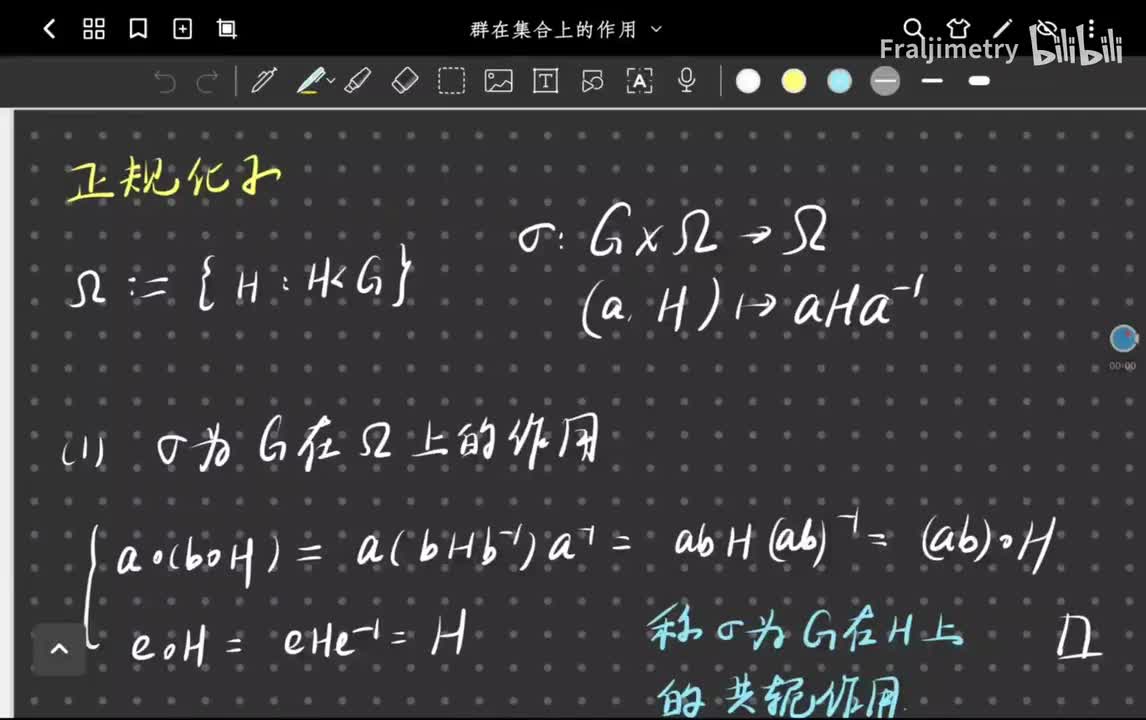 群在集合上的作用
Fraljimetry bilibili
正规化子
Ω := { H : H < G }
σ: G × Ω → Ω
(a, H) ↦ aHa⁻¹
00:00
(1) σ为 G在 Ω 上的作用
a∘(b∘H) = a(bHb⁻¹)a⁻¹ = abH(ab)⁻¹ = (ab)∘H
e∘H = eHe⁻¹ = H
称 σ为 G在 H 上
的 共轭作用.